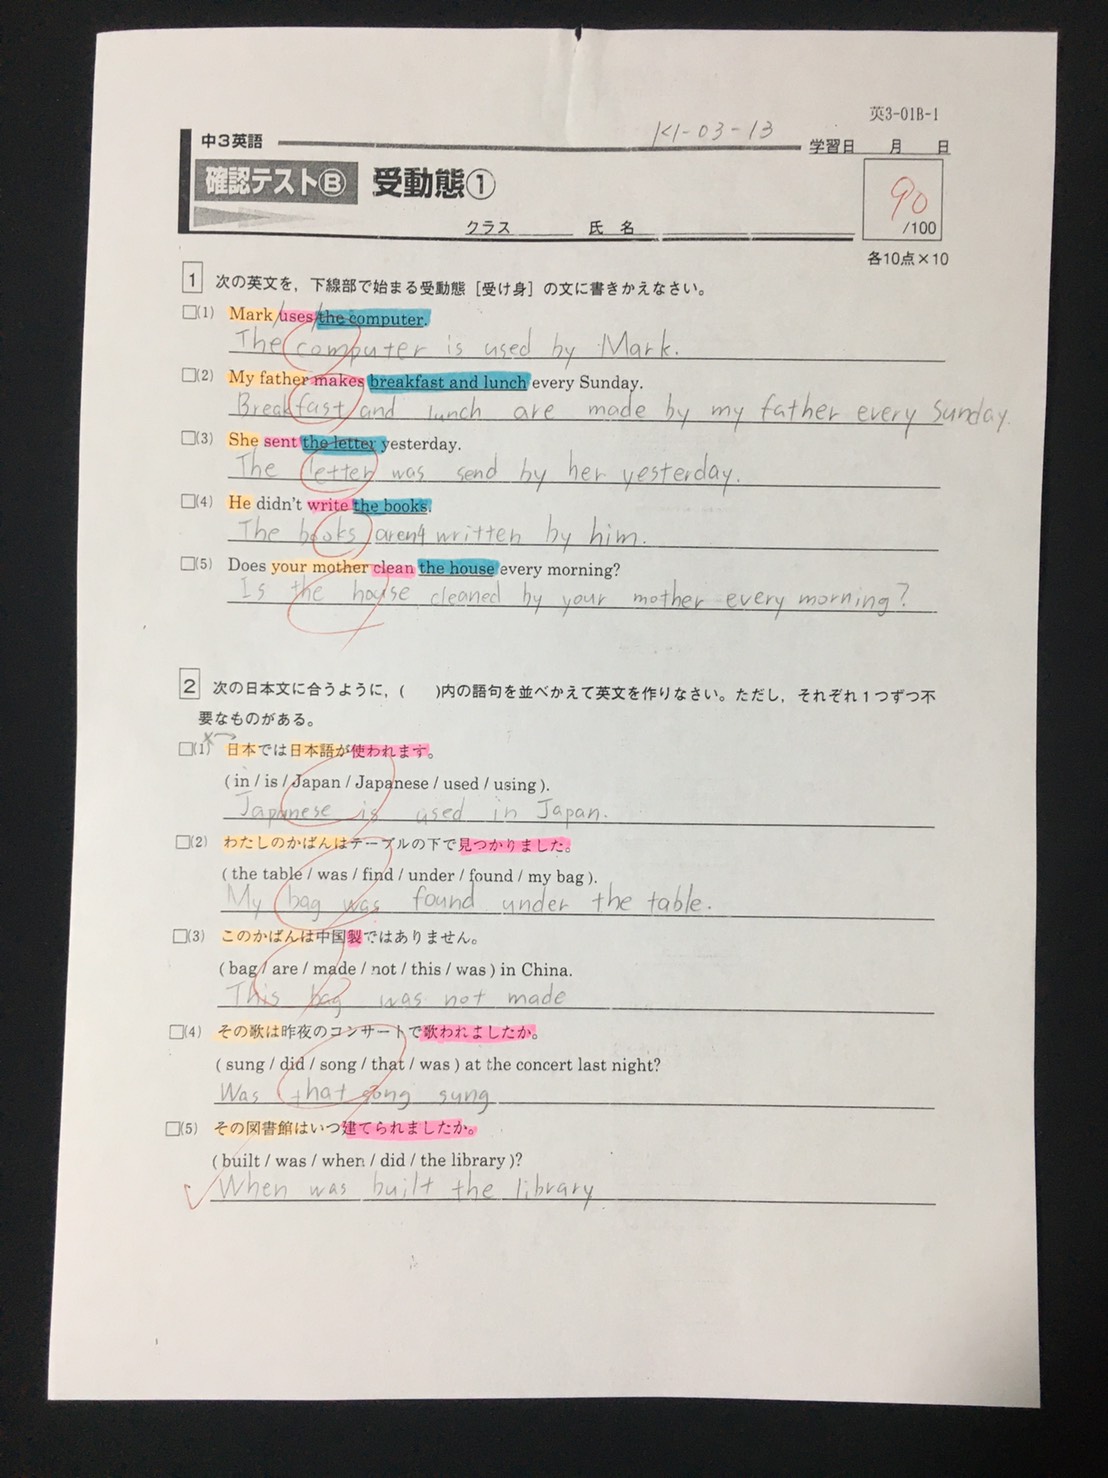 英3-01B-1
K1-03-13
中3英語
学習日 月 日
確認テストⒷ 受動態①
90
/100
クラス 氏 名
各10点×10
1 次の英文を，下線部で始まる受動態［受け身］の文に書きかえなさい。
□(1) Mark/uses/the computer.
The computer is used by Mark.
□(2) My father makes breakfast and lunch every Sunday.
Breakfast and lunch are made by my father every Sunday.
□(3) She sent the letter yesterday.
The letter was send by her yesterday.
□(4) He didn't write the books.
The books aren't written by him.
□(5) Does your mother clean the house every morning?
Is the house cleaned by your mother every morning?
2 次の日本文に合うように，( )内の語句を並べかえて英文を作りなさい。ただし，それぞれ1つずつ不
要なものがある。
□(1) 日本では日本語が使われます。
( in / is / Japan / Japanese / used / using ).
Japanese is used in Japan.
□(2) わたしのかばんはテーブルの下で見つかりました。
( the table / was / find / under / found / my bag ).
My bag was found under the table.
□(3) このかばんは中国製ではありません。
( bag / are / made / not / this / was ) in China.
This bag was not made
□(4) その歌は昨夜のコンサートで歌われましたか。
( sung / did / song / that / was ) at the concert last night?
Was that song sung
□(5) その図書館はいつ建てられましたか。
( built / was / when / did / the library )?
When was built the library